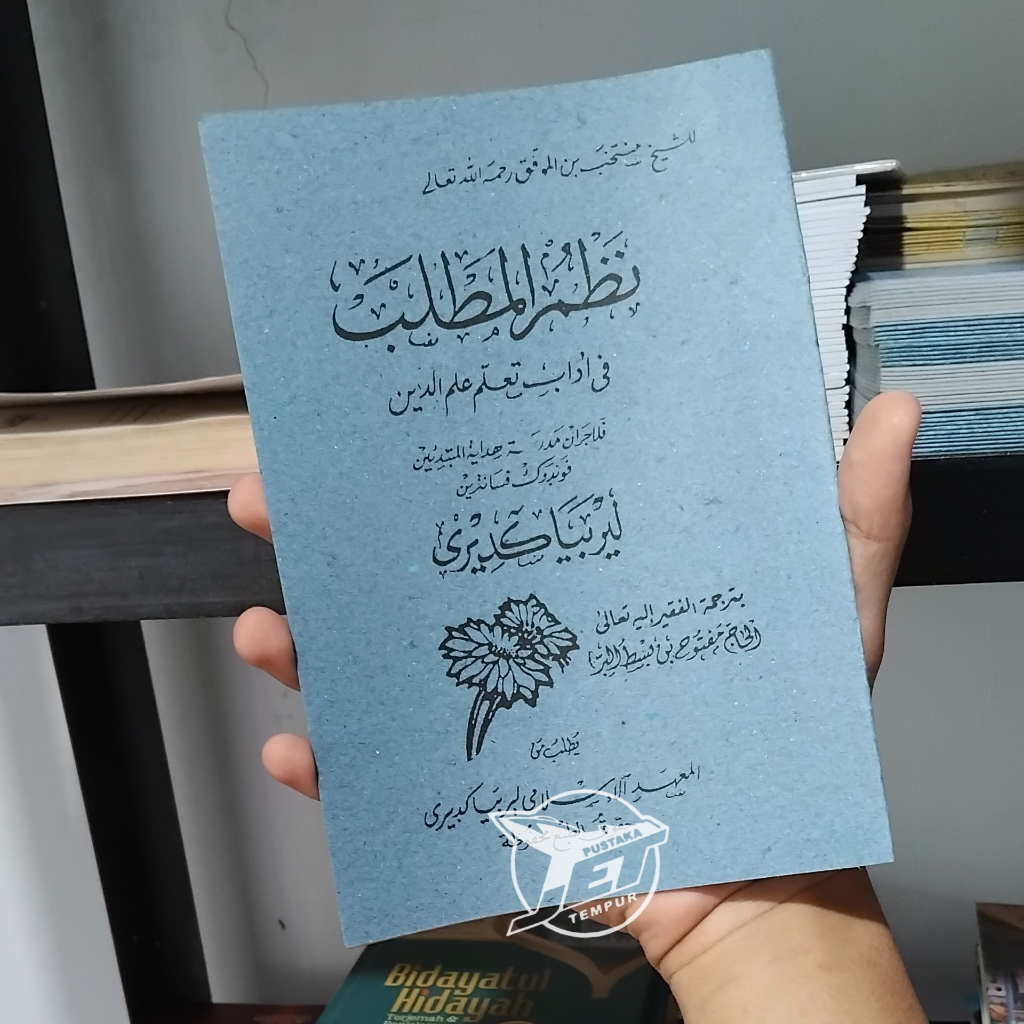 للشيخ منتخب بن الموفق رحمه الله تعالى
نَظْمُ المَطْلَبْ
فى اداب تعلّم علم الدين
فلاجران مدرسة هداية المبتدئين
فوندوك فسانترين
ليربيا كديرى
بترجمة الفقير اليه تعالى
الحاج مفتوح بن بسط
يطلب من
المعهد الاسلامى ليربيا كديرى
حقوق الطبع محفوظة
PUSTAKA
JET
TEMPUR
Bidayatul
Hidayah
Terjemah &